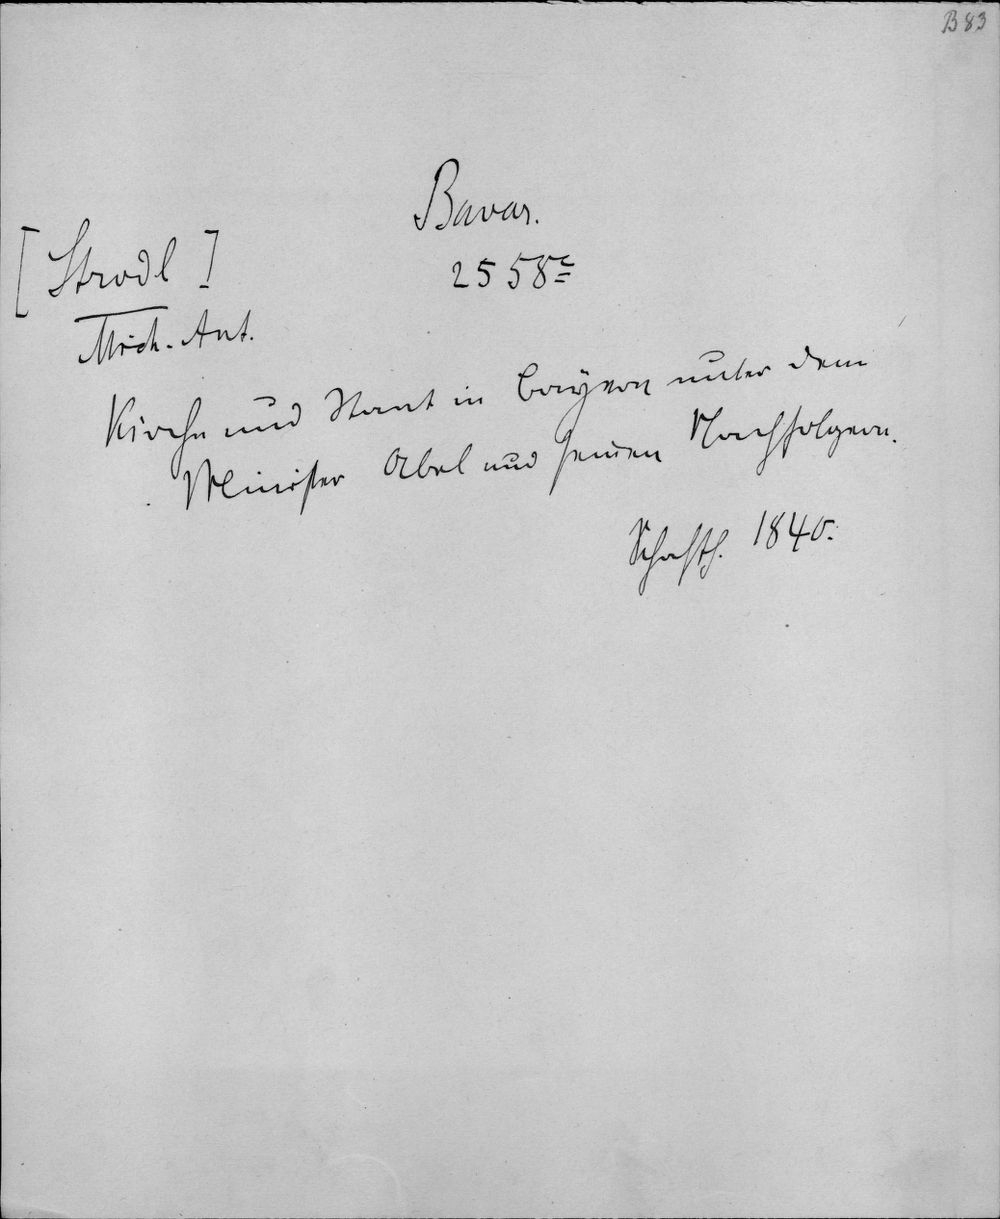 B 83
Bavar.
2558c
[Strodl]
Mich. Ant.
Kirche und Staat in Bayern unter dem
Minister Abel und seinen Nachfolgern.
Schaffh. 1840.